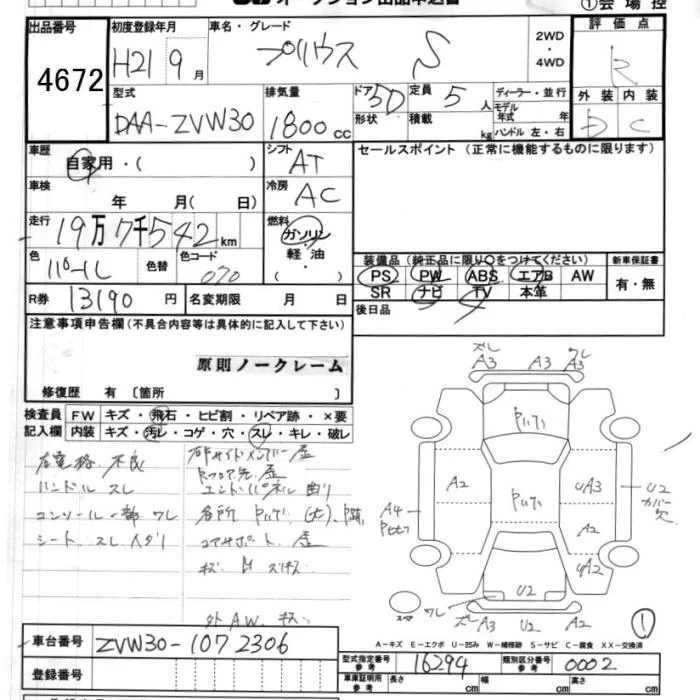 オークション出品申込書
①会場控
出品番号 4672
初度登録年月 H21 9月
車名・グレード プリウス S
2WD・4WD
評価点 R
外装 D 内装 C
型式 DAA-ZVW30
排気量 1800cc
ドア形状 5D
定員 5人
積載 kg
ディーラー・並行
モデル年式 年
ハンドル 左・右
車歴 自家用・( )
シフト AT
セールスポイント (正常に機能するものに限ります)
車検 年 月( 日)
冷房 AC
走行 19万7千542km
燃料 ガソリン・軽油・( )
色 パール 色替 色コード 070
装備品 (純正品に限り○をつけてください) 新車保証書
PS PW ABS エアB AW 有・無
SR ナビ TV 本革
R券 13190円 名変期限 月 日
後日品
注意事項申告欄(不具合内容等は具体的に記入して下さい)
原則ノークレーム
修復歴 有 〔箇所 〕
検査員記入欄
FW キズ・飛石・ヒビ割・リペア跡・×要
内装 キズ・汚レ・コゲ・穴・スレ・キレ・破レ
不良
ハンドル スレ
コンソール一部 ワレ
シート スレ
右サイドメンバー 歪
エンドパネル 曲リ
各所
コアサポート 歪
外AW キズ
A3 A3 ワレ A3
A2 UA3 U2 カバー欠
A4
A2
A2
U2
ワレ A3 U2 A2
スペア
①
A-キズ E-エクボ U-凹み W-補修跡 S-サビ C-腐食 XX-交換済
車台番号 ZVW30-1072306
登録番号
型式指定番号 参考 16294 類別区分番号 参考 0002
車庫証明用 参考 長さ cm 幅 cm 高さ cm